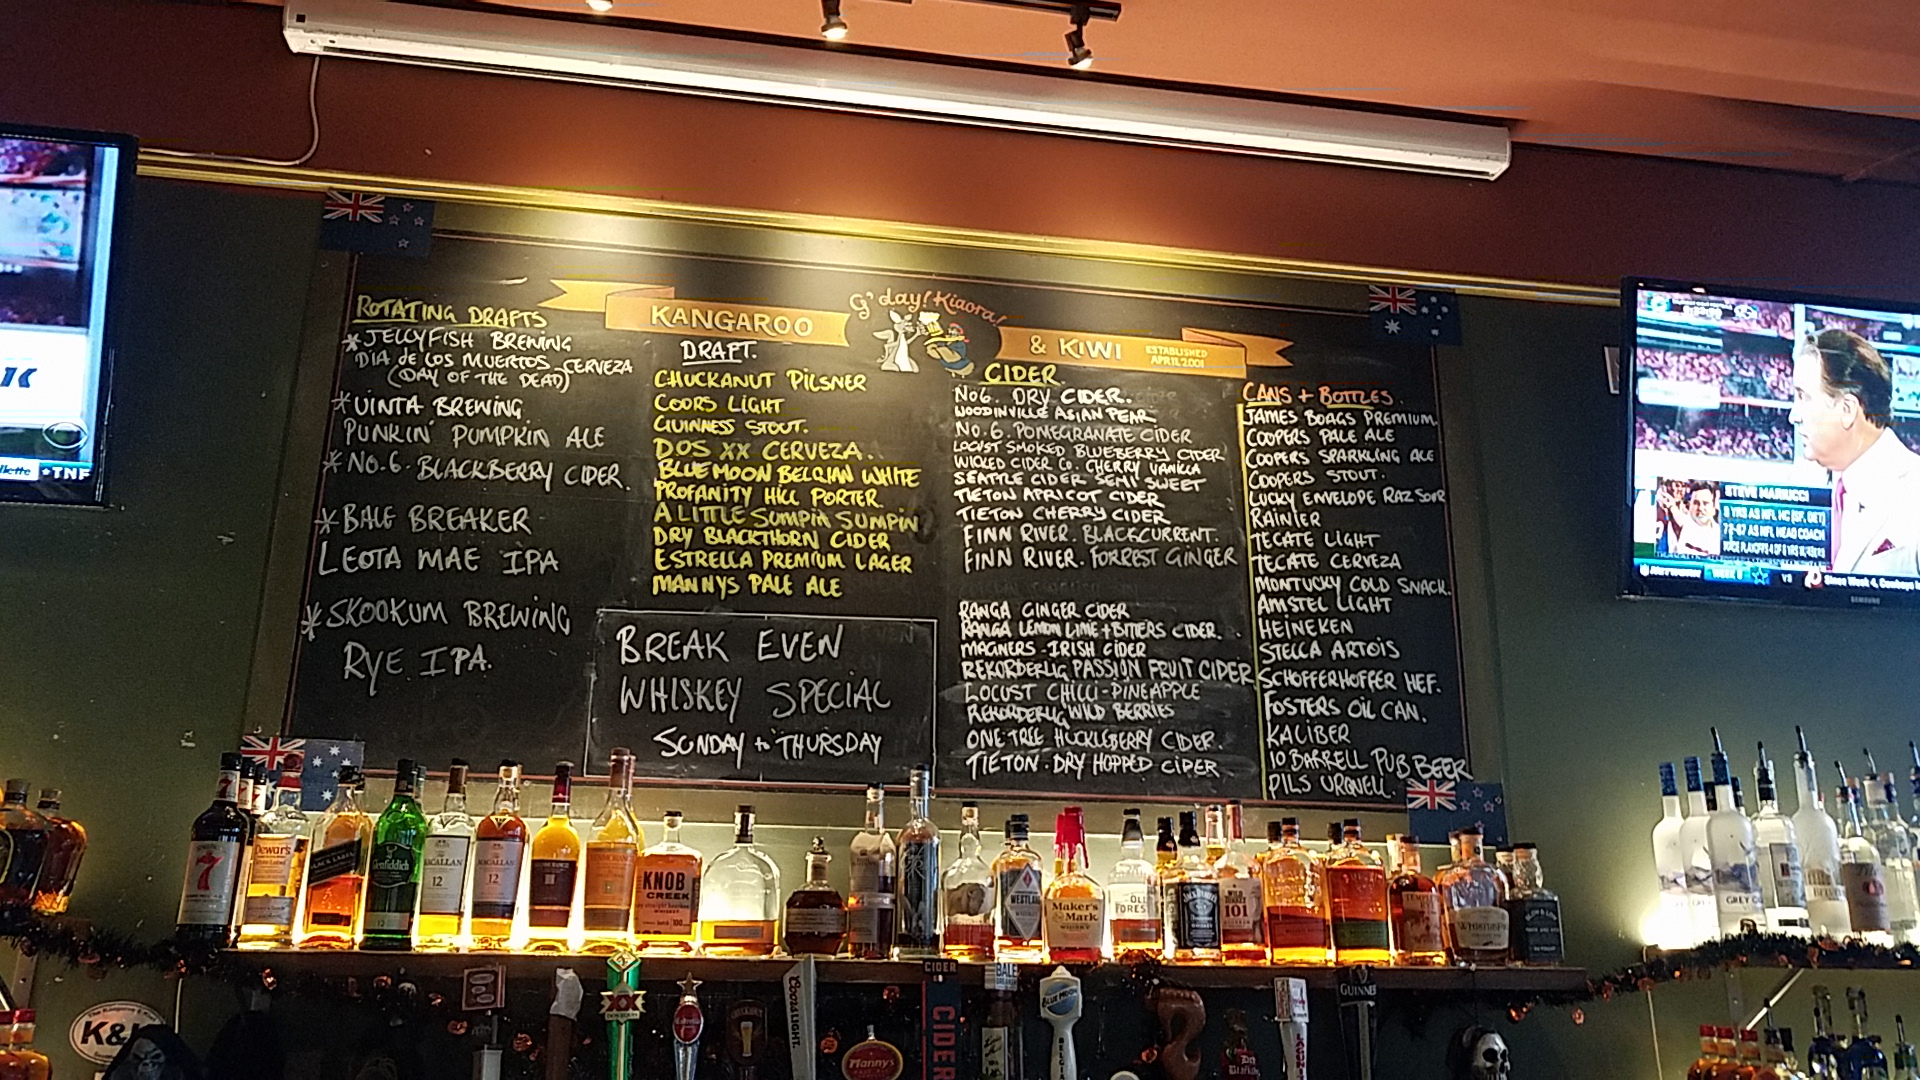 G'day! Kiaora!
KANGAROO
& KIWI
ESTABLISHED
APRIL 2001
ROTATING DRAFTS
* JELLYFISH BREWING
DIA de LOS MUERTOS CERVEZA
(DAY OF THE DEAD)
* UINTA BREWING
PUNKIN' PUMPKIN ALE
* NO.6. BLACKBERRY CIDER.
* BALE BREAKER
LEOTA MAE IPA
* SKOOKUM BREWING
RYE IPA.
DRAFT.
CHUCKANUT PILSNER
COORS LIGHT
GUINNESS STOUT.
DOS XX CERVEZA.
BLUE MOON BELGIAN WHITE
PROFANITY HILL PORTER
A LITTLE SUMPIN SUMPIN
DRY BLACKTHORN CIDER
ESTRELLA PREMIUM LAGER
MANNYS PALE ALE
BREAK EVEN
WHISKEY SPECIAL
SUNDAY to THURSDAY
CIDER
No6. DRY CIDER.
WOODINVILLE ASIAN PEAR
NO.6. POMEGRANATE CIDER
LOCUST SMOKED BLUEBERRY CIDER
WICKED CIDER Co. CHERRY VANILLA
SEATTLE CIDER SEMI SWEET
TIETON APRICOT CIDER
TIETON CHERRY CIDER
FINN RIVER. BLACKCURRENT.
FINN RIVER. FORREST GINGER
RANGA GINGER CIDER
RANGA LEMON LIME + BITTERS CIDER.
MAGNERS - IRISH CIDER
REKORDERLIG PASSION FRUIT CIDER
LOCUST CHILLI-PINEAPPLE
REKORDERLIG WILD BERRIES
ONE TREE HUCKLEBERRY CIDER.
TIETON - DRY HOPPED CIDER
CANS + BOTTLES.
JAMES BOAGS PREMIUM
COOPERS PALE ALE
COOPERS SPARKLING ALE
COOPERS STOUT.
LUCKY ENVELOPE RAZ SOUR
RAINIER
TECATE LIGHT
TECATE CERVEZA
MONTUCKY COLD SNACK.
AMSTEL LIGHT
HEINEKEN
STELLA ARTOIS
SCHOFFERHOFFER HEF.
FOSTERS OIL CAN.
KALIBER
10 BARRELL PUB BEER
PILS URQUELL.
★TNF
STEVE MARIUCCI
72-67 AS NFL HEAD COACH
WEEK 8
VS
Since Week 4, Cowboys
SAMSUNG
7
Dewar's
BLACK LABEL
Glenfiddich
12
MACALLAN
12
MACALLAN
12
KNOB
CREEK
WESTLAND
Maker's
Mark
OLD
FORES
WILD
101
GREY
K&K
COORS LIGHT
Manny's
CIDER
CIDER
BALE
BREAKER
BLUE MOON
BELGIA
GUINNESS